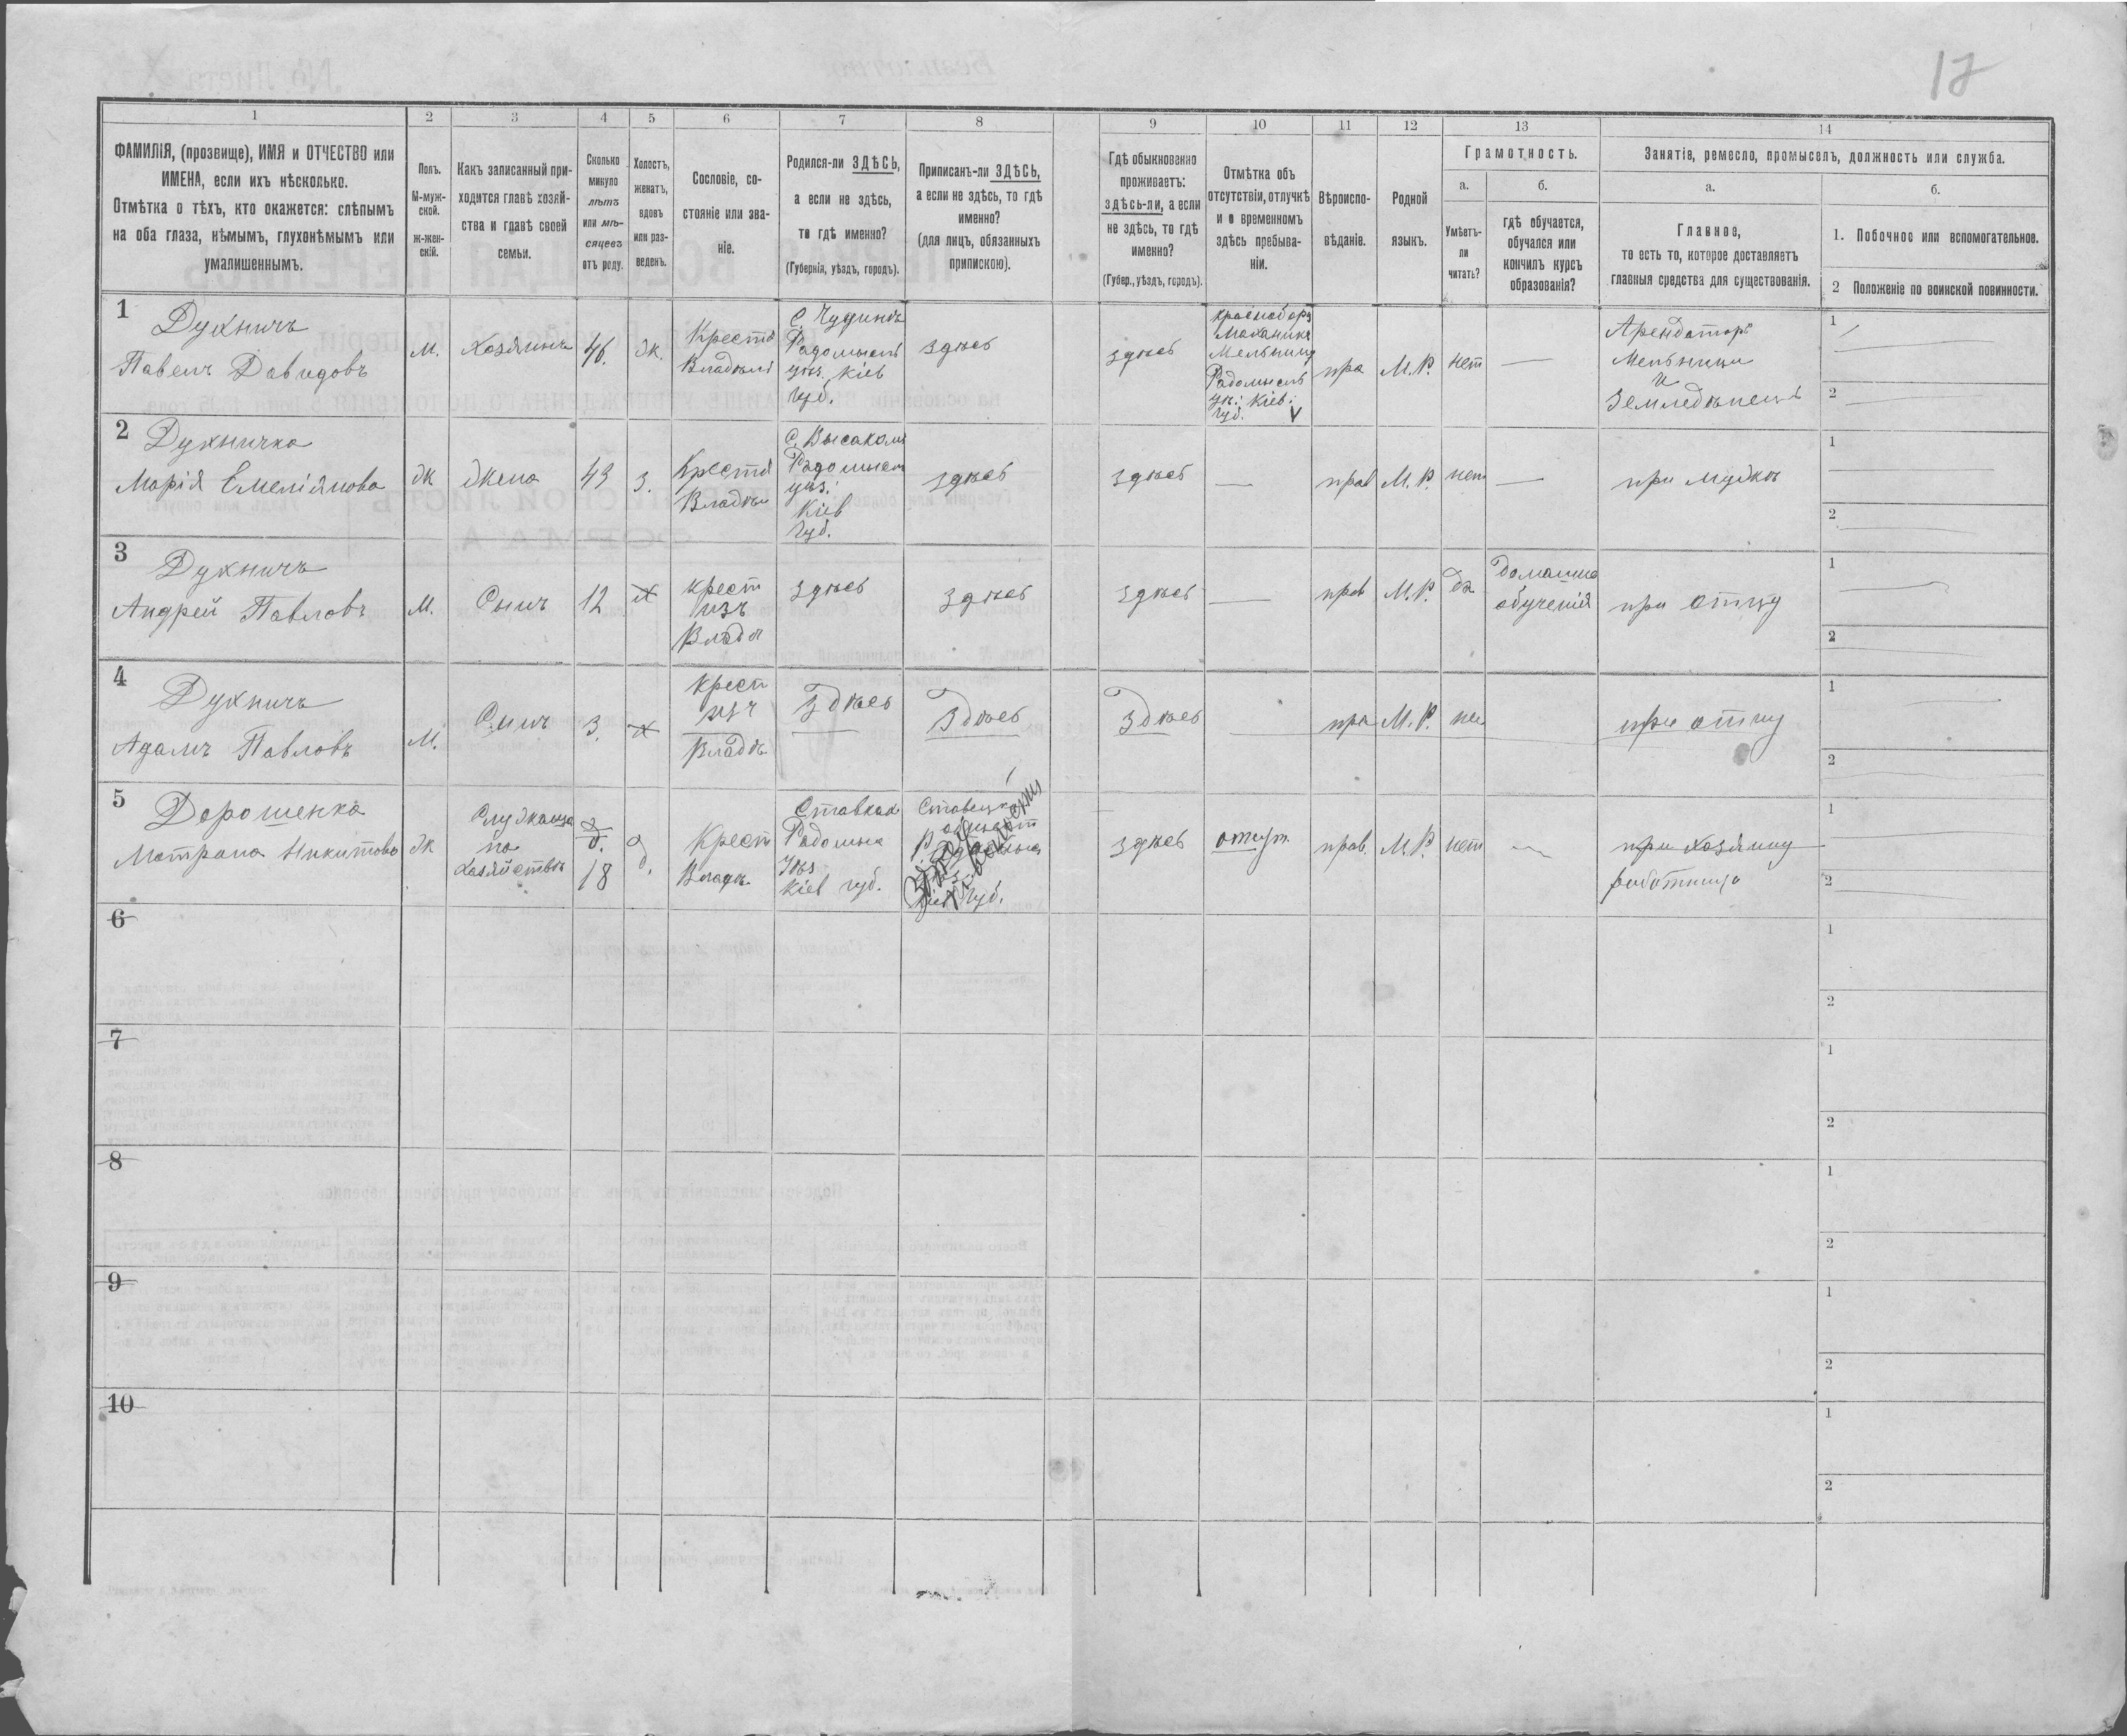 17
1
2
3
4
5
6
7
8
9
10
11
12
13
14
ФАМИЛІЯ, (прозвище), ИМЯ и ОТЧЕСТВО или
ИМЕНА, если ихъ нѣсколько.
Отмѣтка о тѣхъ, кто окажется: слѣпымъ
на оба глаза, нѣмымъ, глухонѣмымъ или
умалишеннымъ.
Полъ.
М-муж-
ской.
ж-жен-
скій.
Какъ записанный при-
ходится главѣ хозяй-
ства и главѣ своей
семьи.
Сколько
минуло
лѣтъ
или мѣ-
сяцевъ
отъ роду.
Холостъ,
женатъ,
вдовъ
или раз-
веденъ.
Сословіе, со-
стояніе или зва-
ніе.
Родился-ли ЗДѢСЬ,
а если не здѣсь,
то гдѣ именно?
(Губернія, уѣздъ, городъ).
Приписанъ-ли ЗДѢСЬ,
а если не здѣсь, то гдѣ
именно?
(для лицъ, обязанныхъ
припискою).
Гдѣ обыкновенно
проживаетъ:
здѣсь-ли, а если
не здѣсь, то гдѣ
именно?
(Губер., уѣздъ, городъ).
Отмѣтка объ
отсутствіи, отлучкѣ
и о временномъ
здѣсь пребыва-
ніи.
Вѣроиспо-
вѣданіе.
Родной
языкъ.
Грамотность.
а.
Умѣетъ-
ли
читать?
б.
гдѣ обучается,
обучался или
кончилъ курсъ
образованія?
Занятіе, ремесло, промыселъ, должность или служба.
а.
Главное,
то есть то, которое доставляетъ
главныя средства для существованія.
б.
1. Побочное или вспомогательное.
2 Положеніе по воинской повинности.
1
Духничъ
Павелъ Давидовъ
м.
Хозяинъ
46.
ж.
Крестя
Владѣл
С. Чудинъ
Радомысл
уѣз. Кіев
губ.
здѣсь
здѣсь
Мельниц
Радомысл
уѣ: Кіев:
губ. V
пра
М.Р.
нет
—
Арендаторъ
Мельницы
и
Земледѣлецъ
1
2
2
Духничка
Марія Емеліянова
ж
жена
43
з.
Крестя
Владѣл
Радомысл
уѣз.
Кіев
губ.
здѣсь
здѣсь
—
прав
М.Р.
нет
—
при мужѣ
1
2
3
Духничъ
Андрей Павловъ
М.
Сынъ
12
х
крест
изъ
Влад
здѣсь
здѣсь
здѣсь
—
прав
М.Р.
да
домашне
обученія
при отцу
1
2
4
Духничъ
Адамъ Павловъ
М.
Сынъ
3.
х
крест
изъ
Владѣ
Здѣсь
Здѣсь
Здѣсь
пра
М.Р.
не
при отцу
1
2
5
Дорошенка
Матрона Никитова
ж
Служаща
по
хозяйствѣ
18
д.
Крест
Владѣ
Ставках
Радомысл
Уѣз
Кіев губ.
губ.
здѣсь
отсут.
прав.
М.Р.
нет
при хозяину
работница
1
2
6
1
2
7
1
2
8
1
2
9
1
2
10
1
2